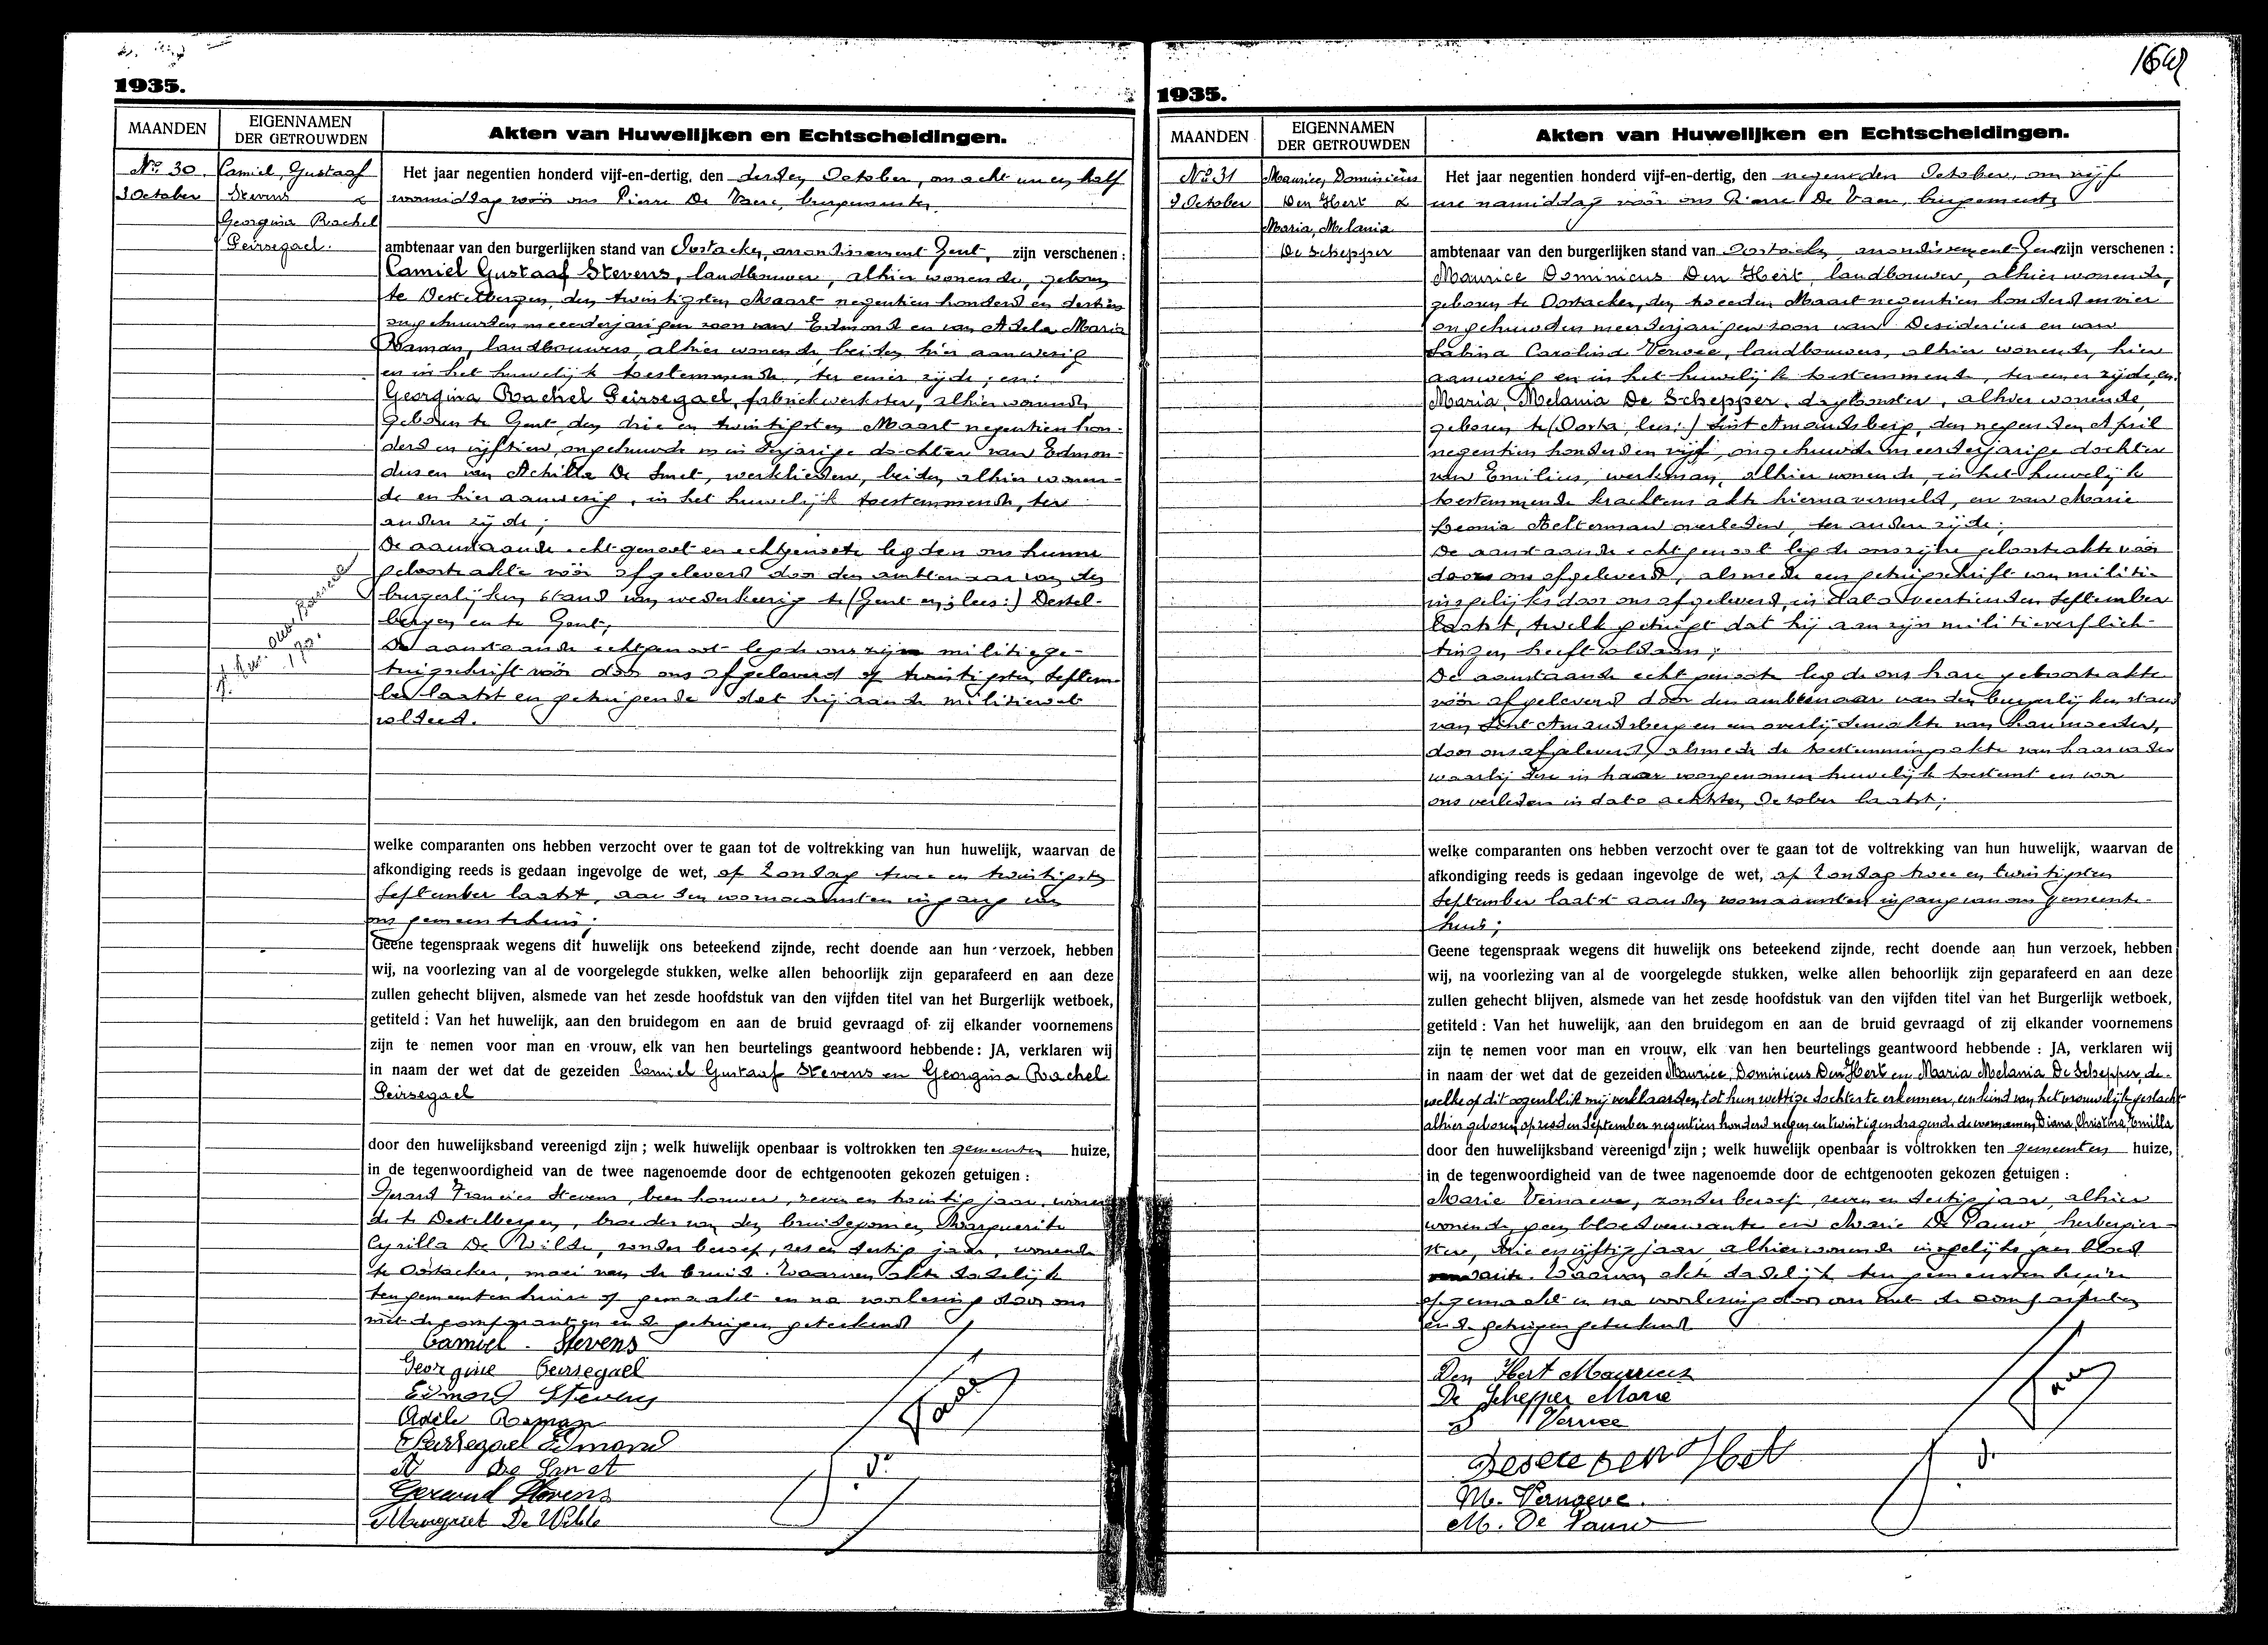 1935.
MAANDEN
EIGENNAMEN
DER GETROUWDEN
Akten van Huwelijken en Echtscheidingen.
No 30.
3 October
Camiel, Gustaaf
Stevens &
Georgina Rachel
Peirsegael.
Het jaar negentien honderd vijf-en-dertig, den derden October, om acht uur en half
voormiddag vóór ons Pierre De Vaere, burgemeester,
ambtenaar van den burgerlijken stand van Oostacker, arrondissement Gent, zijn verschenen:
Camiel Gustaaf Stevens, landbouwer, alhier wonende, geboren
te Destelbergen, den twintigsten Maart negentien honderd en dertien
ongehuwden meerderjarigen zoon van Edmond en van Adela Maria
Raman, landbouwers, alhier wonende, beiden hier aanwezig
en in het huwelijk toestemmende, ter eener zijde; en:
Georgina Rachel Peirsegael, fabriekwerkster, alhier wonende
geboren te Gent, den drie en twintigsten Maart negentien hon-
derd en vijftien, ongehuwde minderjarige dochter van Edmon-
dus en van Achilla De Smet, werklieden, beiden alhier wonen-
de en hier aanwezig, in het huwelijk toestemmende, ter
andere zijde;
De aanstaande echtgenoot en echtgenoote legden ons hunne
geboorteakte vóór afgeleverd door den ambtenaar van den
burgerlijken stand van wederkeerig te (Gent en; lees:) Destel-
bergen en te Gent;
De aanstaande echtgenoot legde ons zijn militiege-
tuigschrift vóór door ons afgeleverd op twintigsten Septem-
ber laatst en getuigende dat hij aan de militiewet
voldeed.
welke comparanten ons hebben verzocht over te gaan tot de voltrekking van hun huwelijk, waarvan de
afkondiging reeds is gedaan ingevolge de wet, op Zondag twee en twintigsten
September laatst, aan den voornaamsten ingang van
ons gemeentehuis;
Geene tegenspraak wegens dit huwelijk ons beteekend zijnde, recht doende aan hun verzoek, hebben
wij, na voorlezing van al de voorgelegde stukken, welke allen behoorlijk zijn geparafeerd en aan deze
zullen gehecht blijven, alsmede van het zesde hoofdstuk van den vijfden titel van het Burgerlijk wetboek,
getiteld: Van het huwelijk, aan den bruidegom en aan de bruid gevraagd of zij elkander voornemens
zijn te nemen voor man en vrouw, elk van hen beurtelings geantwoord hebbende: JA, verklaren wij
in naam der wet dat de gezeiden Camiel Gustaaf Stevens en Georgina Rachel
Peirsegael
door den huwelijksband vereenigd zijn; welk huwelijk openbaar is voltrokken ten gemeenten huize,
in de tegenwoordigheid van de twee nagenoemde door de echtgenooten gekozen getuigen:
Gerard Francies Stevens, beenhouwer, zeven en twintig jaar, wonen
de te Destelbergen, broeder van den bruidegom en Marguerite
Cyrilla De Wilde, zonder beroep, zes en dertig jaar, wonende
te Oostacker, moei van de bruid. Waarvan akte dadelijk
ten gemeentenhuize opgemaakt en na voorlezing door ons
met de comparanten en de getuigen geteekend
Camiel Stevens
Georgine Peirsegael
Edmond Stevens
Adèle Raman
Peirsegael Edmond
A De Smet
Gerard Stevens
Margriet De Wilde
1935.
MAANDEN
EIGENNAMEN
DER GETROUWDEN
Akten van Huwelijken en Echtscheidingen.
No 31
9 October
Maurice, Dominicus
Den Hert &
Maria, Melania
De Schepper
Het jaar negentien honderd vijf-en-dertig, den negenden October, om vijf
ure namiddag vóór ons Pierre De Vaere, burgemeester,
ambtenaar van den burgerlijken stand van Oostacker, arrondissement Gent, zijn verschenen:
Maurice Dominicus Den Hert, landbouwer, alhier wonende,
geboren te Oostacker, den tweeden Maart negentien honderd en vier
ongehuwden meerderjarigen zoon van Desiderius en van
Sabina Carolina Vervee, landbouwers, alhier wonende, hier
aanwezig en in het huwelijk toestemmend, ter eener zijde, en:
Maria, Melania De Schepper, dagloonster, alhier wonende,
geboren te (Oosta; lees:) Sint Amandsberg, den negenden April
negentien honderd en vijf, ongehuwde meerderjarige dochter
van Emilius, werkman, alhier wonende, in het huwelijk
toestemmende krachtens akte hierna vermeld, en van Marie
Leonia Aelterman overleden, ter andere zijde;
De aanstaande echtgenoot legde ons zijne geboorteakte vóór
door ons afgeleverd, alsmede een getuigschrift van militie
insgelijks door ons afgeleverd, in dato veertienden September
laatst, twelk getuigt dat hij aan zijn militieverplich-
tingen heeft voldaan;
De aanstaande echtgenoote legde ons hare geboorteakte
vóór afgeleverd door den ambtenaar van den burgerlijken stand
van Sint Amandsberg en een overlijdensakte van haar moeder,
door ons afgeleverd, alsmede de toestemmingsakte van haar vader
waarbij deze in haar voorgenomen huwelijk toestemt en voor
ons verleden in dato achtsten October laatst;
welke comparanten ons hebben verzocht over te gaan tot de voltrekking van hun huwelijk, waarvan de
afkondiging reeds is gedaan ingevolge de wet, op Zondag twee en twintigsten
September laatst aan den voornaamsten ingang van ons gemeente-
huis;
Geene tegenspraak wegens dit huwelijk ons beteekend zijnde, recht doende aan hun verzoek, hebben
wij, na voorlezing van al de voorgelegde stukken, welke allen behoorlijk zijn geparafeerd en aan deze
zullen gehecht blijven, alsmede van het zesde hoofdstuk van den vijfden titel van het Burgerlijk wetboek,
getiteld: Van het huwelijk, aan den bruidegom en aan de bruid gevraagd of zij elkander voornemens
zijn te nemen voor man en vrouw, elk van hen beurtelings geantwoord hebbende: JA, verklaren wij
in naam der wet dat de gezeiden Maurice, Dominicus Den Hert en Maria Melania De Schepper, de-
welke op dit oogenblik mij verklaarden, tot hun wettige dochter te erkennen, een kind van het vrouwelijk geslacht
alhier geboren op zesden September negentien honderd negen en twintig en dragende de voornamen Diana, Christina, Emilla
door den huwelijksband vereenigd zijn; welk huwelijk openbaar is voltrokken ten gemeenten huize,
in de tegenwoordigheid van de twee nagenoemde door de echtgenooten gekozen getuigen:
Marie Vernaeve, zonder beroep, zeven en dertig jaar, alhier
wonende, geen bloedverwante en Marie De Pauw, herbergier-
ster, drie en vijftig jaar, alhier wonende insgelijks geen bloed
verwante. Waarvan akte dadelijk ten gemeentenhuize
opgemaakt en na voorlezing door ons met de comparanten
en de getuigen geteekend
Den Hert Maurice
De Schepper Marie
S Vervee
Desere Den Hert
M. Vernaeve.
M. De Pauw